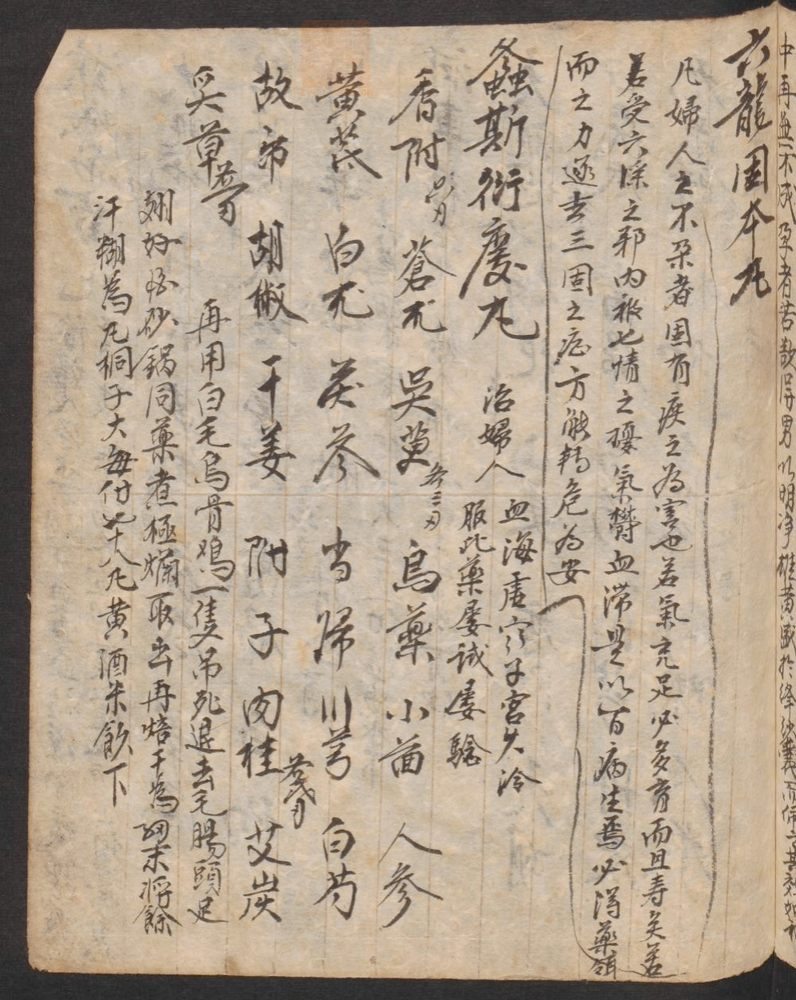 中再無不成孕者若数得男以明净雄黄
六龍固本丸
凡婦人之不孕者因有疾之為害也若氣充足必多育而且寿矣若
若受六淫之邪内被七情之擾氣欝血滞是以百病生焉必得藥
而之力逐去三固之疾方能轉危為安
螽斯衍慶丸 治婦人血海虚寒子宫久冷
服此藥屡試屡驗
香附 蒼朮 吳萸 各三刃 烏藥 小茴 人參
黄芪 白朮 茯苓 当归 川芎 白芍
故帋 胡椒 干姜 附子 肉桂 各弍刃 艾炭
炙草
再用白毛烏骨鸡一隻吊死退去毛腸頭足
翅好 砂鍋同藥煮極爛取出再焙干為細末将餘
汁糊為丸桐子大每付七十八丸黄酒米飲下